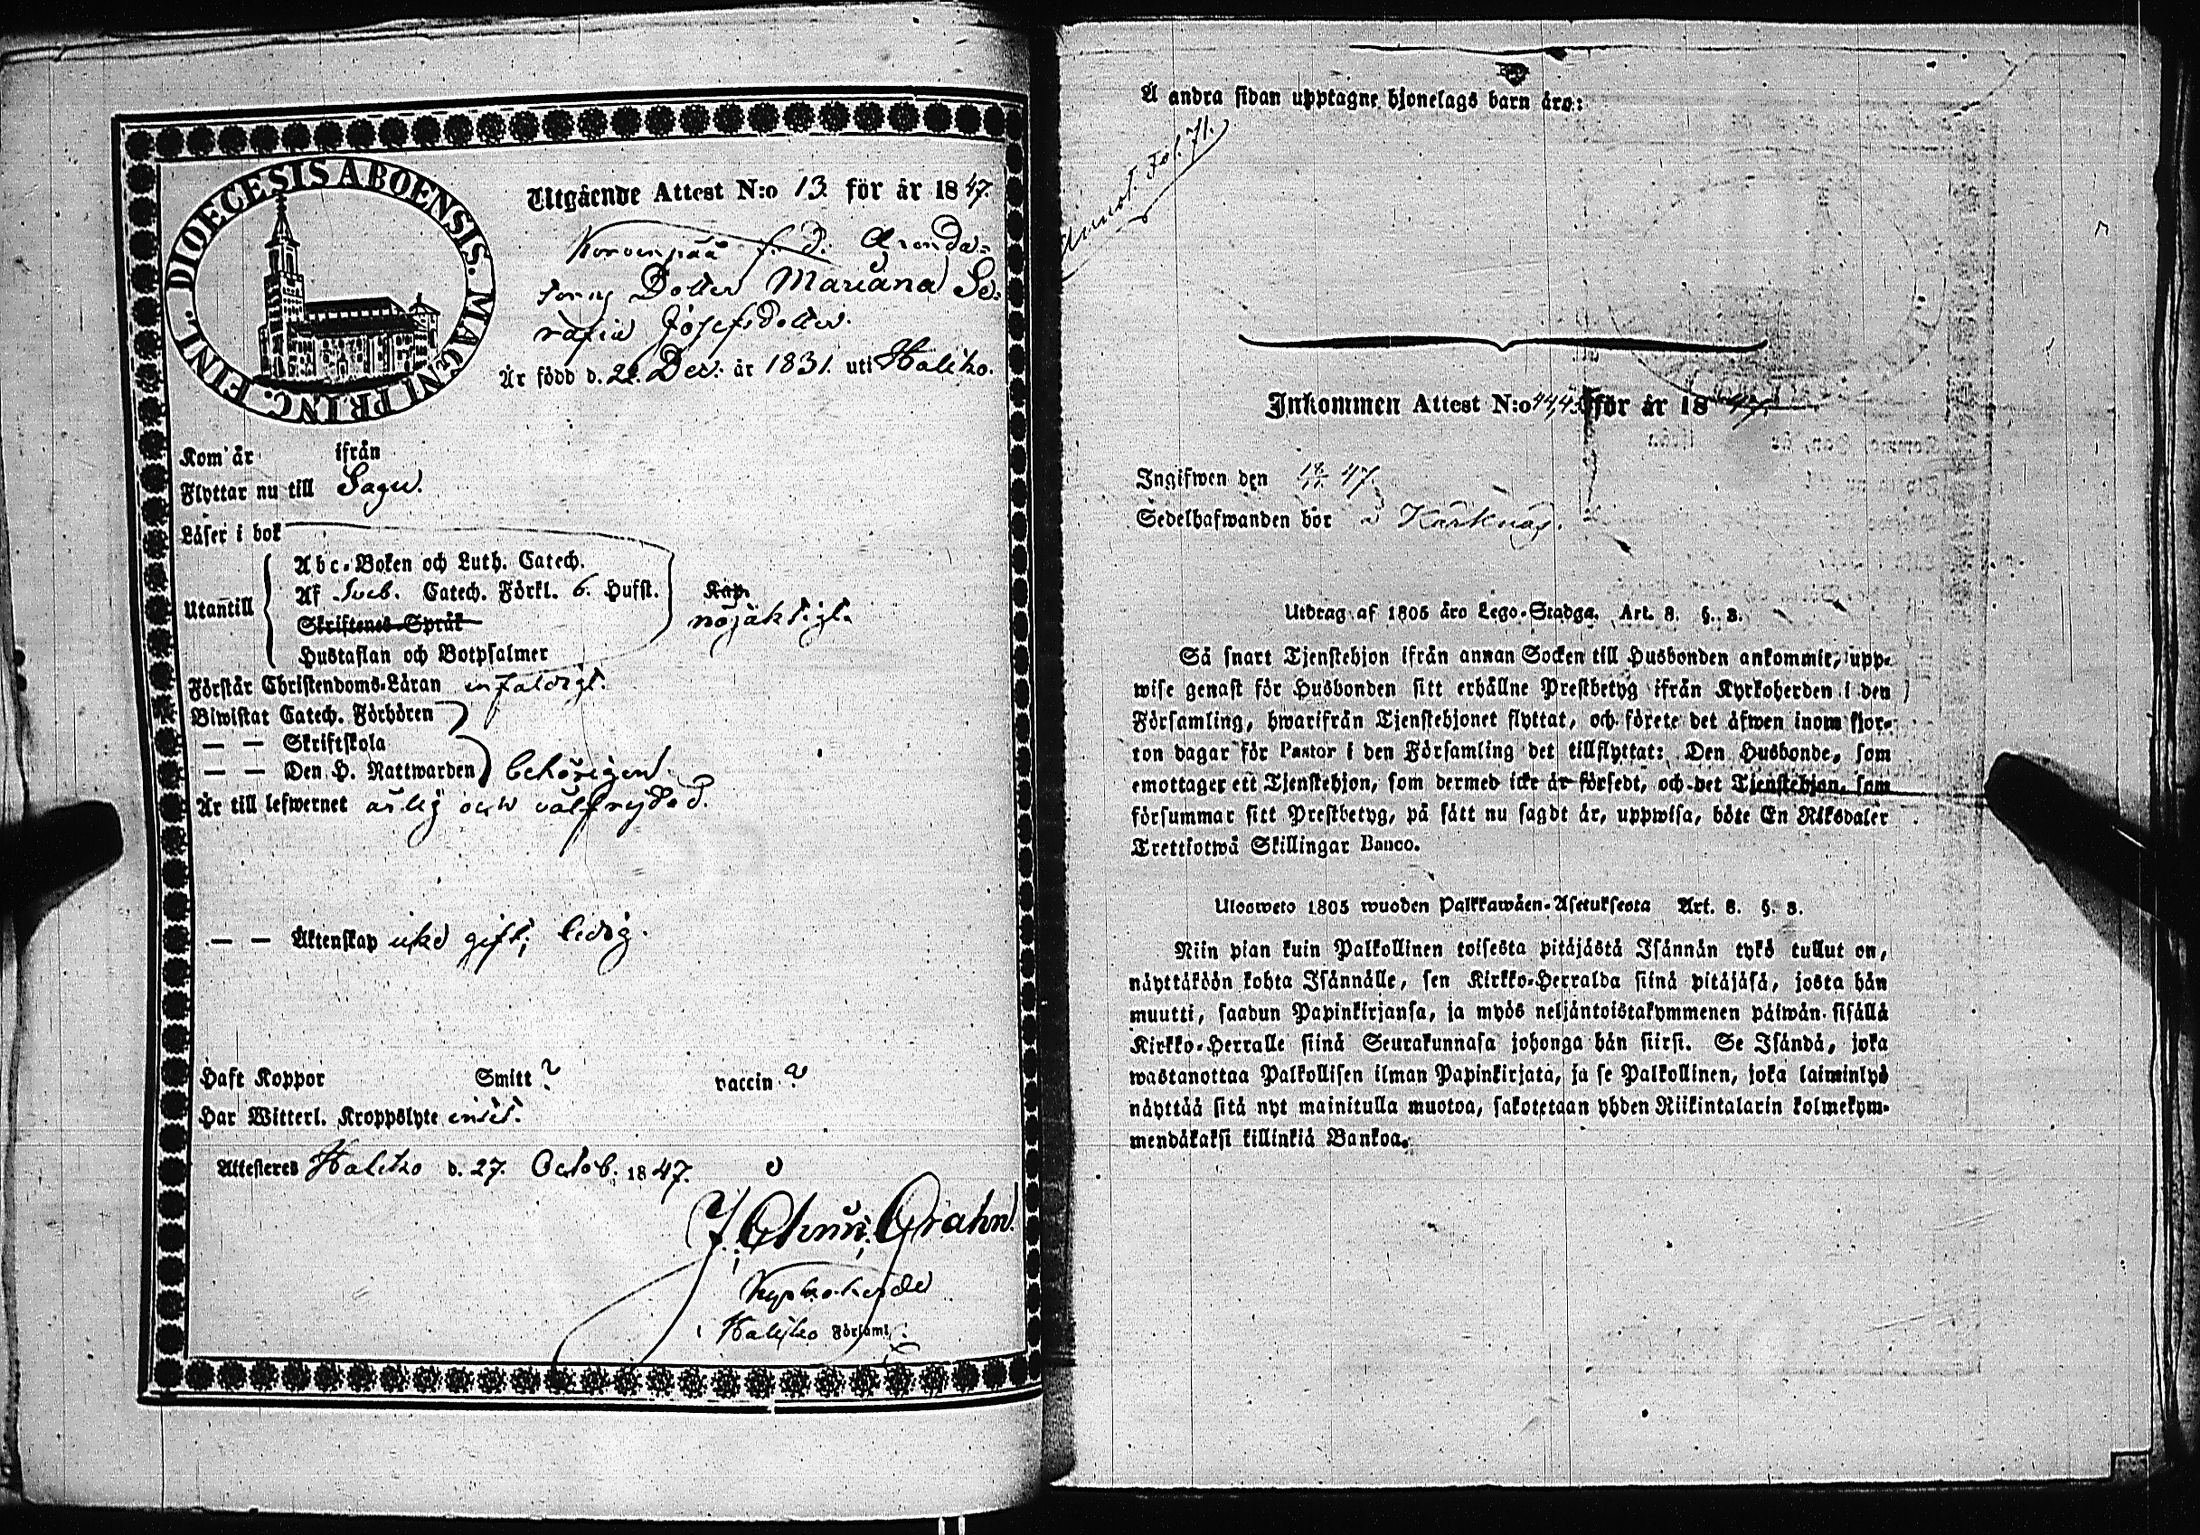 DIOECESIS ABOENSIS. MAGNI PRINC. FINL.
Utgående Attest N:o 13. för år 1847.
Korvenpää f. d. Arenda=
torns Dotter Mariana Se=
rafia Josefsdotter.
År född d. 22. Dec. år 1831. uti Halikko.
Kom år ifrån
Flyttar nu till Sagu.
Läser i bok
Utantill
Abc-Boken och Luth. Catech.
Af Sveb. Catech. Förkl. 6. Hufst.
Skriftenes Språk
Hustaflan och Botpsalmer
Kap.
nöjaktigt.
Förstår Christendoms-Läran enfaldigt.
Biwistat Catech. Förhören
— — Skriftskola
— — Den H. Nattwarden behörigen.
Är till lefwernet ärlig och välfrejdad.
— — Äktenskap icke gift; ledig.
Haft Koppor Smitt ? vaccin ?
Har Witterl. Kroppslyte intet.
Attesteres Halikko d. 27. Octob. 1847.
J. Chr. Grahn.
Kyrkoherde
i Halikko Församl.
Å andra sidan upptagne hjonelags barn äro:
Annot. Fol. 71.
Inkommen Attest N:o för år 1847.
Ingifwen den 47.
Sedelhafwanden bor å Karknäs.
Utdrag af 1805 års Lego-Stadga. Art. 8. §. 3.
Så snart Tjenstehjon ifrån annan Socken till Husbonden ankommit, upp-
wise genast för Husbonden sitt erhållne Prestbetyg ifrån Kyrkoherden i den
Församling, hwarifrån Tjenstehjonet flyttat, och förete det äfwen inom fjor-
ton dagar för Pastor i den Församling det tillflyttat: Den Husbonde, som
emottager ett Tjenstehjon, som dermed icke är försedt, och det Tjenstehjon, som
försummar sitt Prestbetyg, på sätt nu sagdt är, uppwisa, böte En Riksdaler
Trettiotwå Skillingar Banco.
Ulosweto 1805 wuoden Palkkawäen-Asetuksesta Art. 8. §. 3.
Niin pian kuin Palkollinen toisesta pitäjästä Isännän tykö tullut on,
näyttäköön kohta Isännälle, sen Kirkko-Herralda siinä pitäjäsä, josta hän
muutti, saadun Papinkirjansa, ja myös neljäntoistakymmenen päiwän sisällä
Kirkko-Herralle siinä Seurakunnasa johonga hän siirsi. Se Isändä, joka
wastanottaa Palkollisen ilman Papinkirjata, ja se Palkollinen, joka laiminlyö
näyttää sitä nyt mainitulla muotoa, sakotetaan yhden Riikintalarin kolmekym-
mendäkaksi killinkiä Bankoa.